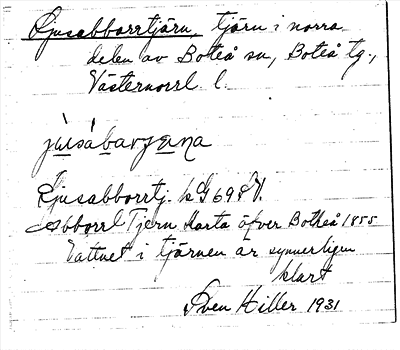 Ljusabborrtjärn, tjärn i norra
delen av Boteå sn, Boteå tg.,
Västernorrl. l.
jùsábarɟæna
Ljusabborrtj. kG 69 SV.
Abborrl Tjern Karta öfver Botheå 1855
Vattnet i tjärnen är synnerligen
klart
Sven Hiller 1931